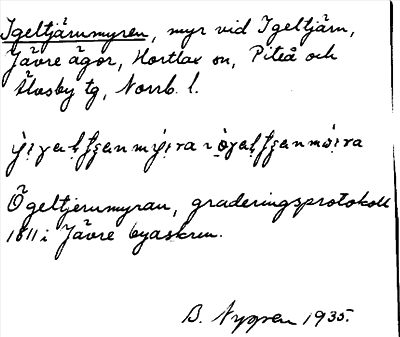 Igeltjärnmyren, myr vid Igeltjärn,
Jävre ägor, Hortlax sn, Piteå och
Älvsby tg, Norrb. l.
Ögeltjernmyran, graderingsprotokoll
1811 i Jävre byaskrin.
B. Nyppen 1935.